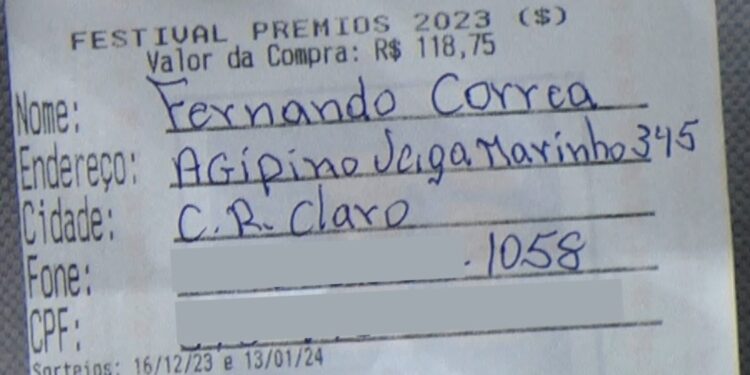 FESTIVAL PREMIOS 2023 ($)
Valor da Compra: R$ 118,75
Nome: Fernando Correa
Endereço: AGipino Veiga Marinho 345
Cidade: C.R. Claro
Fone: .1058
CPF:
Sorteios: 16/12/23 e 13/01/24